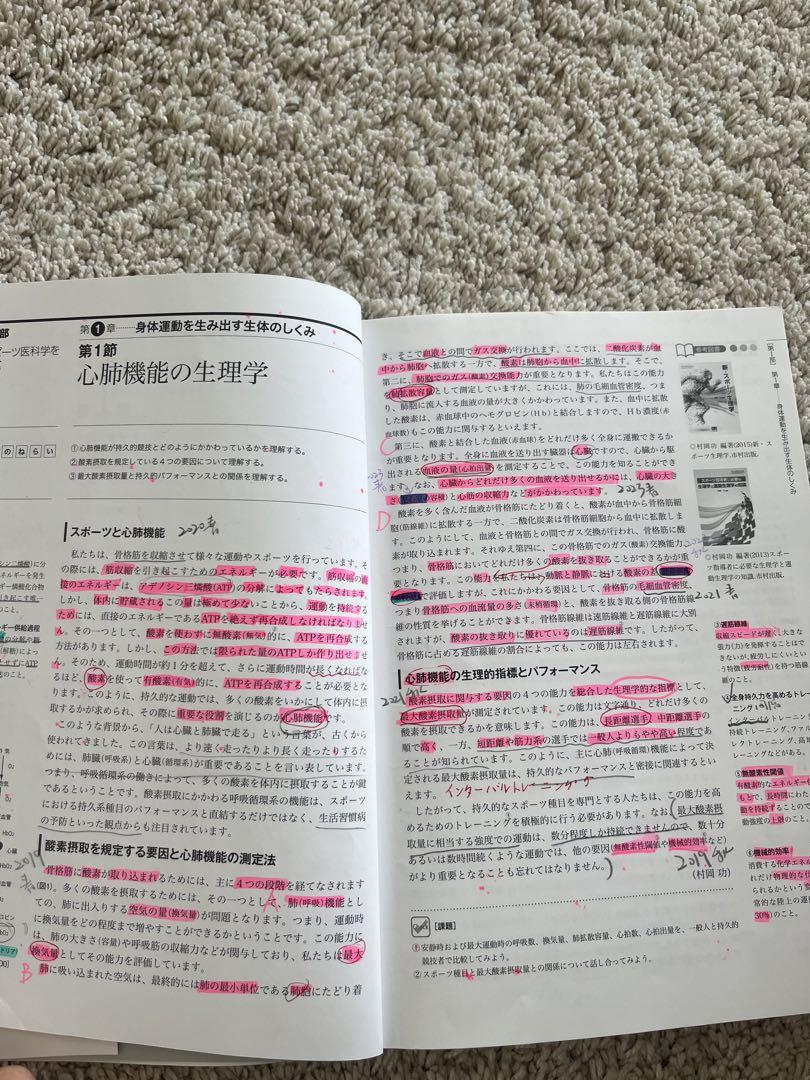 部
ーツ医科学を
のねらい
第1章……身体運動を生み出す生体のしくみ
第1節
心肺機能の生理学
①心肺機能が持久的競技とどのようにかかわっているかを理解する。
②酸素摂取を規定している4つの要因について理解する。
③最大酸素摂取量と持久的パフォーマンスとの関係を理解する。
スポーツと心肺機能
2020春
私たちは、骨格筋を収縮させて様々な運動やスポーツを行っています。そ
の際には、筋収縮を引き起こすためのエネルギーが必要です。筋収縮の直
接のエネルギーは、アデノシン三燐酸(ATP)の分解によってもたらされます。
しかし、体内に貯蔵されるこの量は極めて少ないことから、運動を持続する
ためには、直接のエネルギーであるATPを絶えず再合成しなければなりませ
ん。その一つとして、酸素を使わずに無酸素(無気)的に、ATPを再合成する
方法があります。しかし、この方法では限られた量のATPしか作り出せませ
ん。そのため、運動時間が約1分を超えて、さらに運動時間が長くなればな
るほど、酸素を使って有酸素(有気)的に、ATPを再合成することが必要とな
ります。このように、持久的な運動では、多くの酸素をいかにして体内に摂取
するかが求められ、その際に重要な役割を演じるのが心肺機能です。
このような背景から、「人は心臓と肺臓で走る」という言葉が、古くから
使われてきました。この言葉は、より速く走ったりより長く走ったりするた
めには、肺臓(呼吸系)と心臓(循環系)が重要であることを言い表しています。
つまり、呼吸循環系の働きによって、多くの酸素を体内に摂取することが鍵
であるということです。酸素摂取にかかわる呼吸循環系の機能は、スポーツ
における持久系種目のパフォーマンスと直結するだけではなく、生活習慣病
の予防といった観点からも注目されています。
2019
春
酸素摂取を規定する要因と心肺機能の測定法
骨格筋に酸素が取り込まれるためには、主に4つの段階を経てなされます
(図1)。多くの酸素を摂取するためには、その一つとして、肺(呼吸)機能とし
ての、肺に出入りする空気の量(換気量)が問題となります。つまり、運動時
に換気量をどの程度まで増やすことができるかということです。この能力に
は、肺の大きさ(容量)や呼吸筋の収縮力などが関与しており、私たちは最大
換気量としてその能力を評価しています。
肺に吸い込まれた空気は、最終的には肺の最小単位である肺胞にたどり着
A
B
き、そこで血液との間でガス交換が行われます。ここでは、二酸化炭素が血
中から肺胞へ拡散する一方で、酸素は肺胞から血中に拡散します。そこで、
第二に、肺胞でのガス(酸素)交換能力が重要となります。私たちはこの能力
を肺拡散容量として測定していますが、これには、肺の毛細血管密度、つま
り、肺胞に流入する血液の量が大きくかかわっています。また、血中に拡散した
酸素は、赤血球中のヘモグロビン(Hb)と結合しますので、Hb濃度(赤
血球数)もこの能力に関与するといえます。
C
第三に、酸素と結合した血液(赤血球)をどれだけ多く全身に運搬できるか
が重要となります。全身に血液を送り出す臓器は心臓ですので、心臓から駆
出される血液の量(心拍出量)を測定することで、この能力を知ることができ
ます。なお、心臓からどれだけ多くの血液を送り出せるかには、心臓の大き
さ(の容積)と心筋の収縮力などがかかわっています。
2023春
D
酸素を多く含んだ血液が骨格筋にたどり着くと、酸素が血中から骨格筋細
胞(筋線維)に拡散する一方で、二酸化炭素は骨格筋細胞から血中に拡散しま
す。このようにして、血液と骨格筋との間でガス交換が行われ、骨格筋に酸
素が取り込まれます。それゆえ第四に、この骨格筋でのガス(酸素)交換能力、
つまり骨格筋においてどれだけ多くの酸素を抜き取ることができるかが重
要となります。この能力を私たちは、動脈と静脈における酸素の
で評価しますが、これにかかわる要因として、骨格筋の毛細血管密度、
つまり骨格筋への血流量の多さ(末梢循環)と、酸素を抜き取る側の骨格筋線
維の性質を挙げることができます。骨格筋線維は速筋線維と遅筋線維に大別
されますが、酸素の抜き取りに優れているのは遅筋線維です。したがって、
骨格筋に占める遅筋線維の割合によっても、この能力は左右されます。
2021春
心肺機能の生理的指標とパフォーマンス
酸素摂取に関与する要因の4つの能力を総合した生理学的な指標として、
最大酸素摂取量が測定されています。この能力は文字通り、どれだけ多くの
酸素を摂取できるかを意味します。この能力は、長距離選手、中距離選手の
順で高く、一方、短距離や筋力系の選手では一般人よりもやや高い程度であ
ることが知られています。このように、主に心肺(呼吸循環)機能によって決
定される最大酸素摂取量は、持久的なパフォーマンスと密接に関連するとい
えます。
インターバルトレーニング
したがって、持久的なスポーツ種目を専門とする人たちは、この能力を高
めるためのトレーニングを積極的に行う必要があります。なお、最大酸素摂
取量に相当する強度での運動は、数分程度しか持続できませんので、数十分
あるいは数時間続くような運動では、他の要因(無酸素性閾値や機械的効率など)
がより重要となることも忘れてはなりません。
(村岡 功)
【課題】
①安静時および最大運動時の呼吸数、換気量、肺拡散容量、心拍数、心拍出量を、一般人と持久的
競技者で比較してみよう。
②スポーツ種目と最大酸素摂取量との関係について話し合ってみよう。
参考図書
◎村岡功 編著(2015)新・スポ
ーツ生理学.市村出版.
◎村岡功 編著(2013)スポー
ツ指導者に必要な生理学と運
動生理学の知識.市村出版.
③遅筋線維
収縮スピードが遅く、大きな
張力(力)を発揮することはで
きないが、疲労しにくいとい
う特徴(疲労耐性)を持つ筋線
維のこと。
④全身持久力を高めるトレー
ニング
インターバル
⑤無酸素性閾値
⑥機械的効率
30%)のこと。
第Ⅰ部
第1章
身体運動を生み出す生体のしくみ